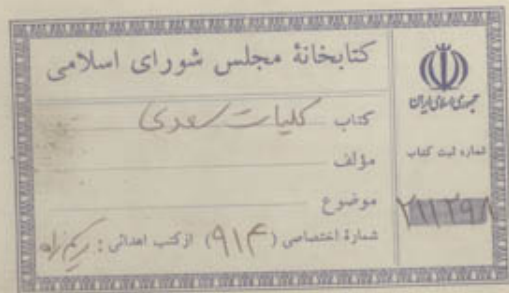 کتابخانهٔ مجلس شورای اسلامی
کتاب کلیات سعدی
مؤلف
موضوع
شمارهٔ اختصاصی (۹۱۴) از کتب اهدائی :
جمهوری اسلامی ایران
شماره ثبت کتاب